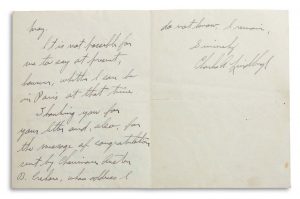 May.
It is not possible for
me to say at present,
however, whether I can be
in Paris at that time.
Thanking you for
your letter and, also, for
the message of congratulation
sent by
D. whose address I
do not know, I remain,
Sincerely
Charles A. Lindbergh